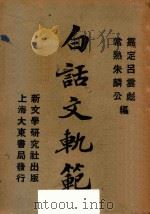 鑑定呂雲彪
常熟朱麟公 編
白話文軌範
新文學研究社出版
上海大東書局發行